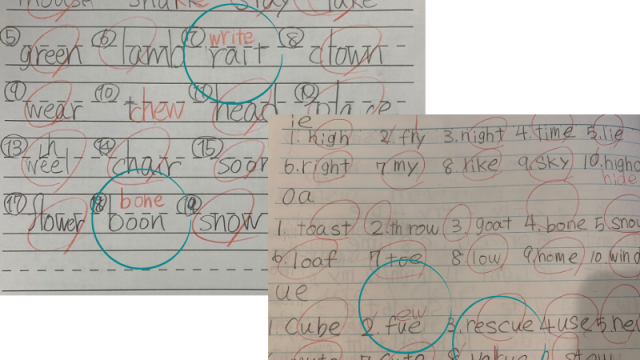 write
⑤ green ⑥ lamb ⑦ rait ⑧ clown
⑨ wear ⑩ chew ⑪ head
⑬ weel ⑭ chair ⑮ soon
h
bone
⑰ flower ⑱ boon ⑲ snow
ie
1. high 2. fly 3. night 4. time 5. lie
6. right 7 my 8. like 9. sky 10.
hide
oa
1. toast 2. throw 3. goat 4. bone 5. snow
6. loaf 7 toe 8 low 9 home 10. wind
ue
ew
1. cube 2. fue 3. rescue 4 use 5. new